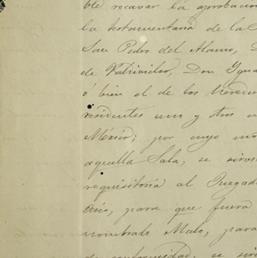 ble recavar la aprobacion
la testamentaria de la C
San Pedro del Alamo, D
de Valdivielso, Don Igna
ó bien el de los
residentes unos y otros en
México; por cuyo mo
aquella Sala, se sirv
requisitoria al Juzgad
para que fuera
nombrado Malo, para
de conformidad, se sir